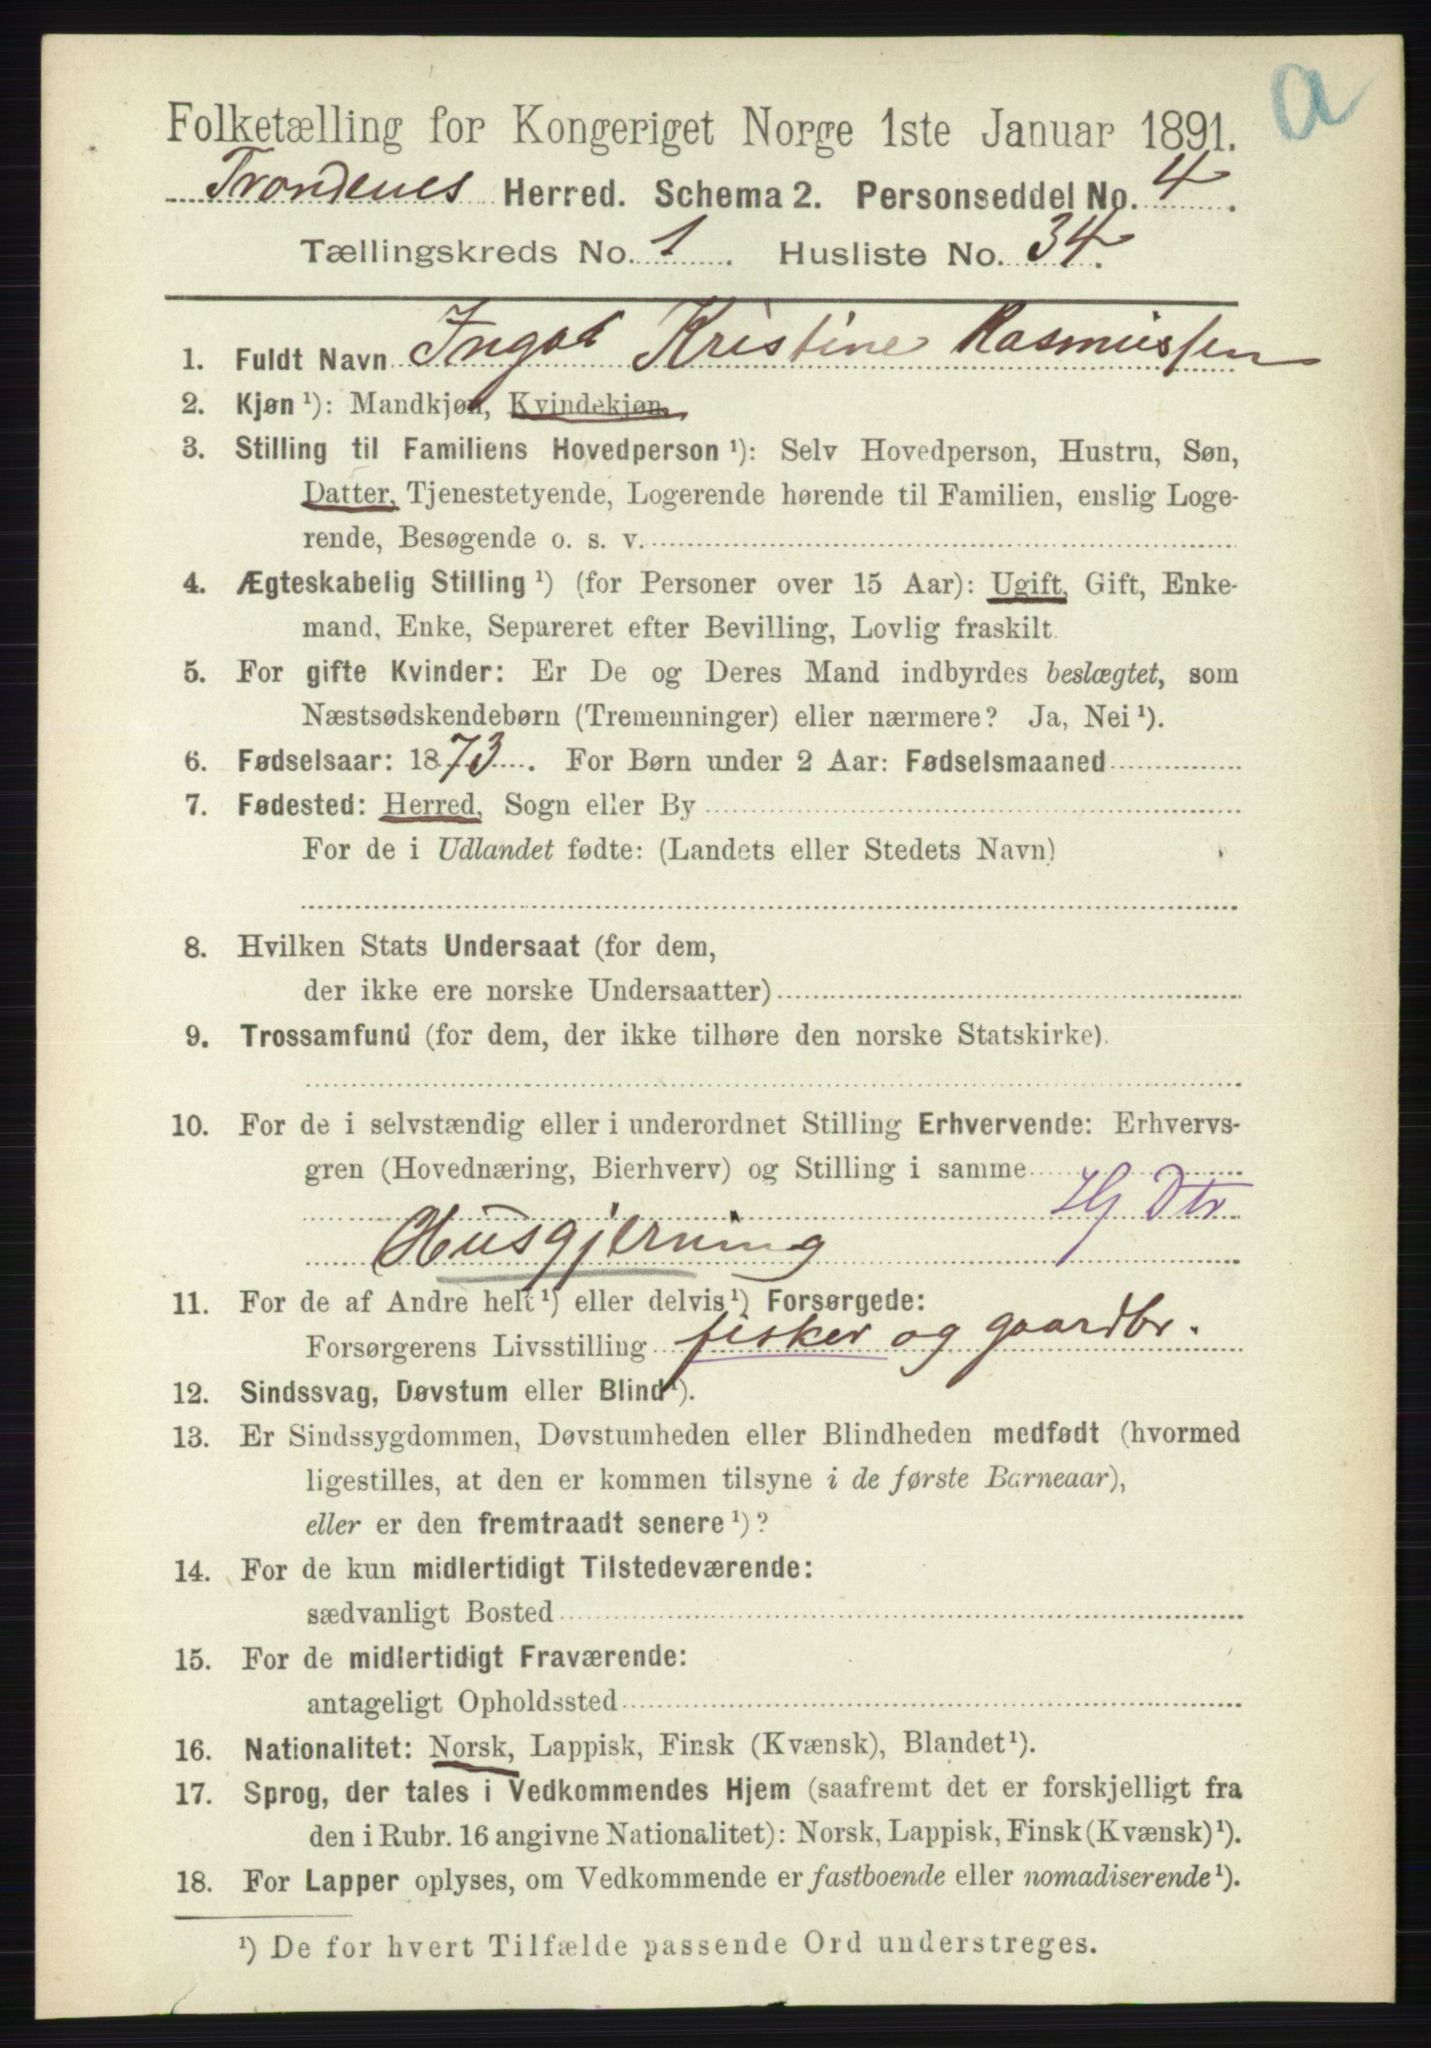 a
Folketælling for Kongeriget Norge 1ste Januar 1891.
Trondenes Herred. Schema 2. Personseddel No. 4.
Tællingskreds No. 1. Husliste No. 34.
1. Fuldt Navn Kristine Rasmussen
2. Kjøn ¹): Mandkjøn, Kvindekjøn.
3. Stilling til Familiens Hovedperson ¹): Selv Hovedperson, Hustru, Søn,
Datter, Tjenestetyende, Logerende hørende til Familien, enslig Loge-
rende, Besøgende o. s. v.
4. Ægteskabelig Stilling ¹) (for Personer over 15 Aar): Ugift, Gift, Enke-
mand, Enke, Separeret efter Bevilling, Lovlig fraskilt
5. For gifte Kvinder: Er De og Deres Mand indbyrdes beslægtet, som
Næstsødskendebørn (Tremenninger) eller nærmere? Ja, Nei ¹).
6. Fødselsaar: 1873. For Børn under 2 Aar: Fødselsmaaned
7. Fødested: Herred, Sogn eller By
For de i Udlandet fødte: (Landets eller Stedets Navn)
8. Hvilken Stats Undersaat (for dem,
der ikke ere norske Undersaatter)
9. Trossamfund (for dem, der ikke tilhøre den norske Statskirke).
10. For de i selvstændig eller i underordnet Stilling Erhvervende: Erhvervs-
gren (Hovednæring, Bierhverv) og Stilling i samme
Hg Dtr
Husgjerning
11. For de af Andre helt ¹) eller delvis ¹) Forsørgede:
Forsørgerens Livsstilling fisker og gaardbr.
12. Sindssvag, Døvstum eller Blind ¹).
13. Er Sindssygdommen, Døvstumheden eller Blindheden medfødt (hvormed
ligestilles, at den er kommen tilsyne i de første Barneaar),
eller er den fremtraadt senere ¹)?
14. For de kun midlertidigt Tilstedeværende:
sædvanligt Bosted
15. For de midlertidigt Fraværende:
antageligt Opholdssted
16. Nationalitet: Norsk, Lappisk, Finsk (Kvænsk), Blandet ¹).
17. Sprog, der tales i Vedkommendes Hjem (saafremt det er forskjelligt fra
den i Rubr. 16 angivne Nationalitet): Norsk, Lappisk, Finsk (Kvænsk) ¹).
18. For Lapper oplyses, om Vedkommende er fastboende eller nomadiserende ¹).
¹) De for hvert Tilfælde passende Ord understreges.